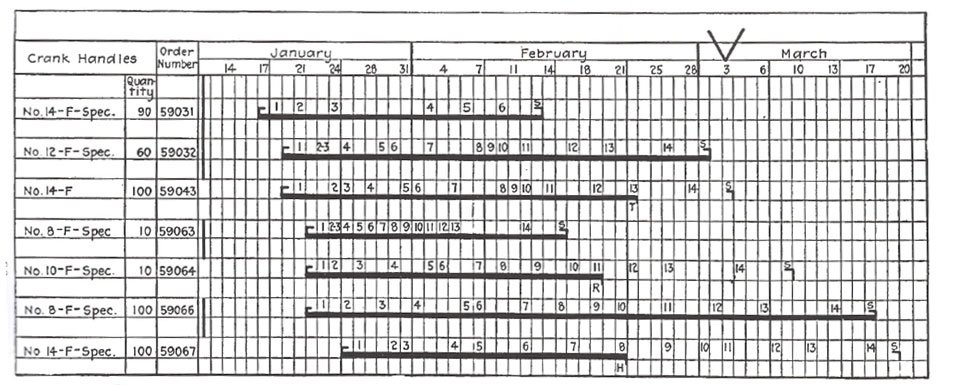 Crank Handles Order Number January February March
14 17 21 24 28 31 4 7 11 14 18 21 25 28 3 6 10 13 17 20
Quan-tity
No. 14-F-Spec. 90 59031 1 2 3 4 5 6 S
No 12-F-Spec. 60 59032 1 2-3 4 5 6 7 8 9 10 11 12 13 14 S
No. 14-F 100 59043 1 2 3 4 5 6 7 8 9 10 11 12 13 14 S
T
No. 8-F-Spec 10 59063 1 2-3 4 5 6 7 8 9 10 11 12 13 14 S
No. 10-F-Spec. 10 59064 1 2 3 4 5 6 7 8 9 10 11 12 13 14 S
R
No. 8-F-Spec. 100 59066 1 2 3 4 5 6 7 8 9 10 11 12 13 14 S
No 14-F-Spec. 100 59067 1 2 3 4 5 6 7 8 9 10 11 12 13 14 S
H